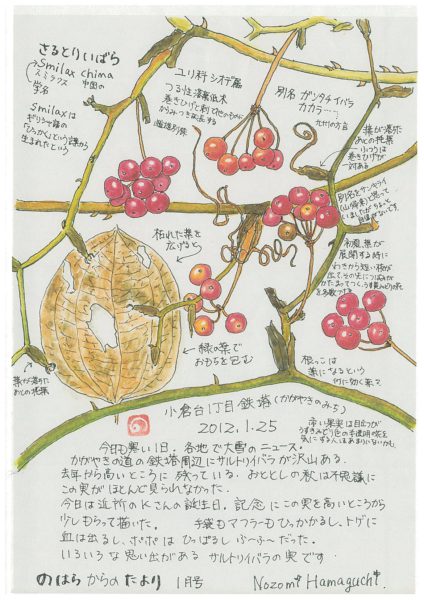 さるとりいばら
Smilax china
スミラックス 中国の
学名
Smilaxは
ギリシア語の
「ひっかく」という語から
生まれたという
ユリ科 シオデ属
つる性落葉低木
巻きひげと刺で他のものに
からみつき成長する
雌雄別株
別名 ガンタチイバラ
カカラ……
九州の方言
葉が落ちた
あとの托葉
ふつうは
巻きひげが
一対ある
別名をサンキライ
(山帰来)と思って
初夏、葉が
展開する時に
枯れた葉を
広げると
緑の葉で
おもちを包む
根っこは
薬になるという
葉が落ちた
あとの托葉
小倉台1丁目鉄塔 (かがやきのみち)
2012.1.25
赤い果実は目立つが
今日も寒い1日。各地で大雪のニュース。
かがやきの道の鉄塔周辺にサルトリイバラが沢山ある。
去年から高いところに残っている。おととしの秋は不思議に
この実がほとんど見られなかった。
今日は近所のKさんの誕生日。記念にこの実を高いところから
少しもらって描いた。 手袋もマフラーもひっかかるし、トゲに
血は出るし、ホホは ひっぱるし ふ〜ふ〜だった。
いろいろな思い出がある サルトリイバラの実です
のはらからのたより 1月号
Nozomi Hamaguchi